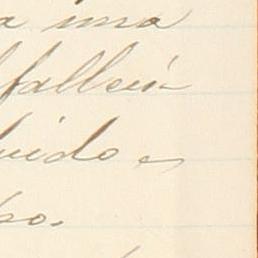 a uma
falleci-
uido e
po.